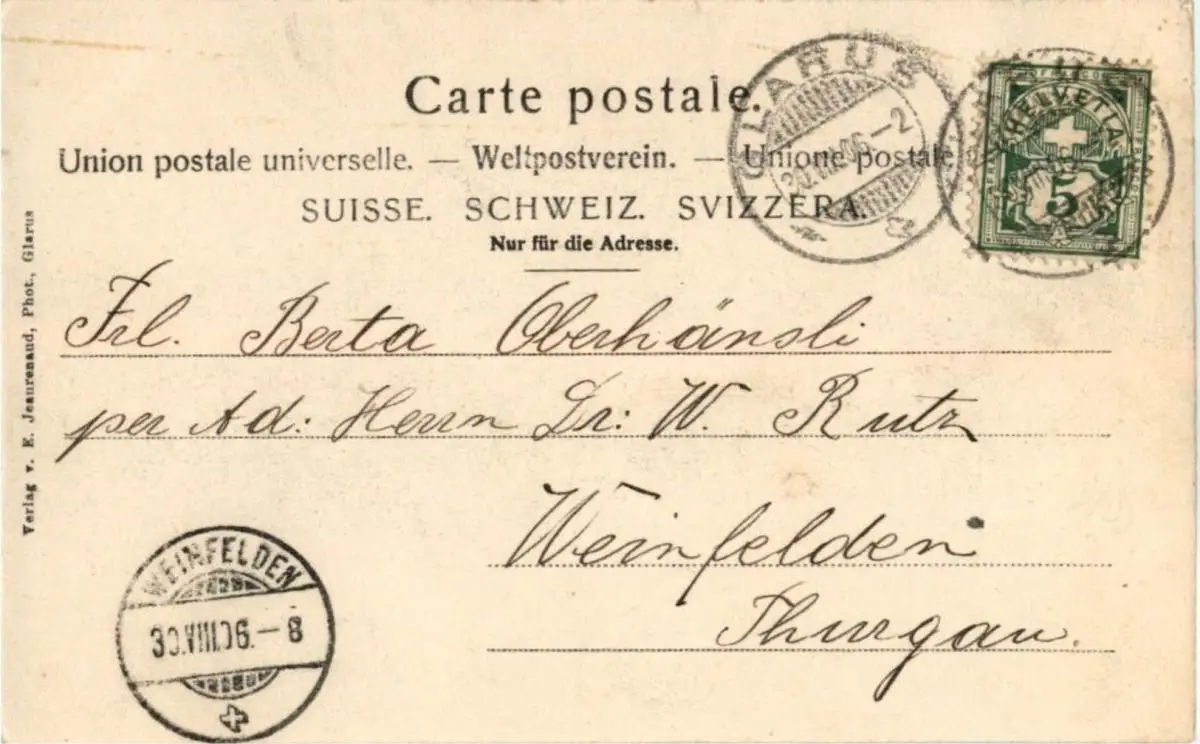 Carte postale.
Union postale universelle. — Weltpostverein. — Unione postale
SUISSE. SCHWEIZ. SVIZZERA.
Nur für die Adresse.
GLARUS
30.VIII.06.-2
HELVETIA
5
Frl. Berta Oberhänsli
per Ad: Herrn Dr: W. Rutz
Weinfelden
Thurgau.
Verlag v. E. Jeaurenaud, Phot., Glarus
WEINFELDEN
30.VIII.06.-8